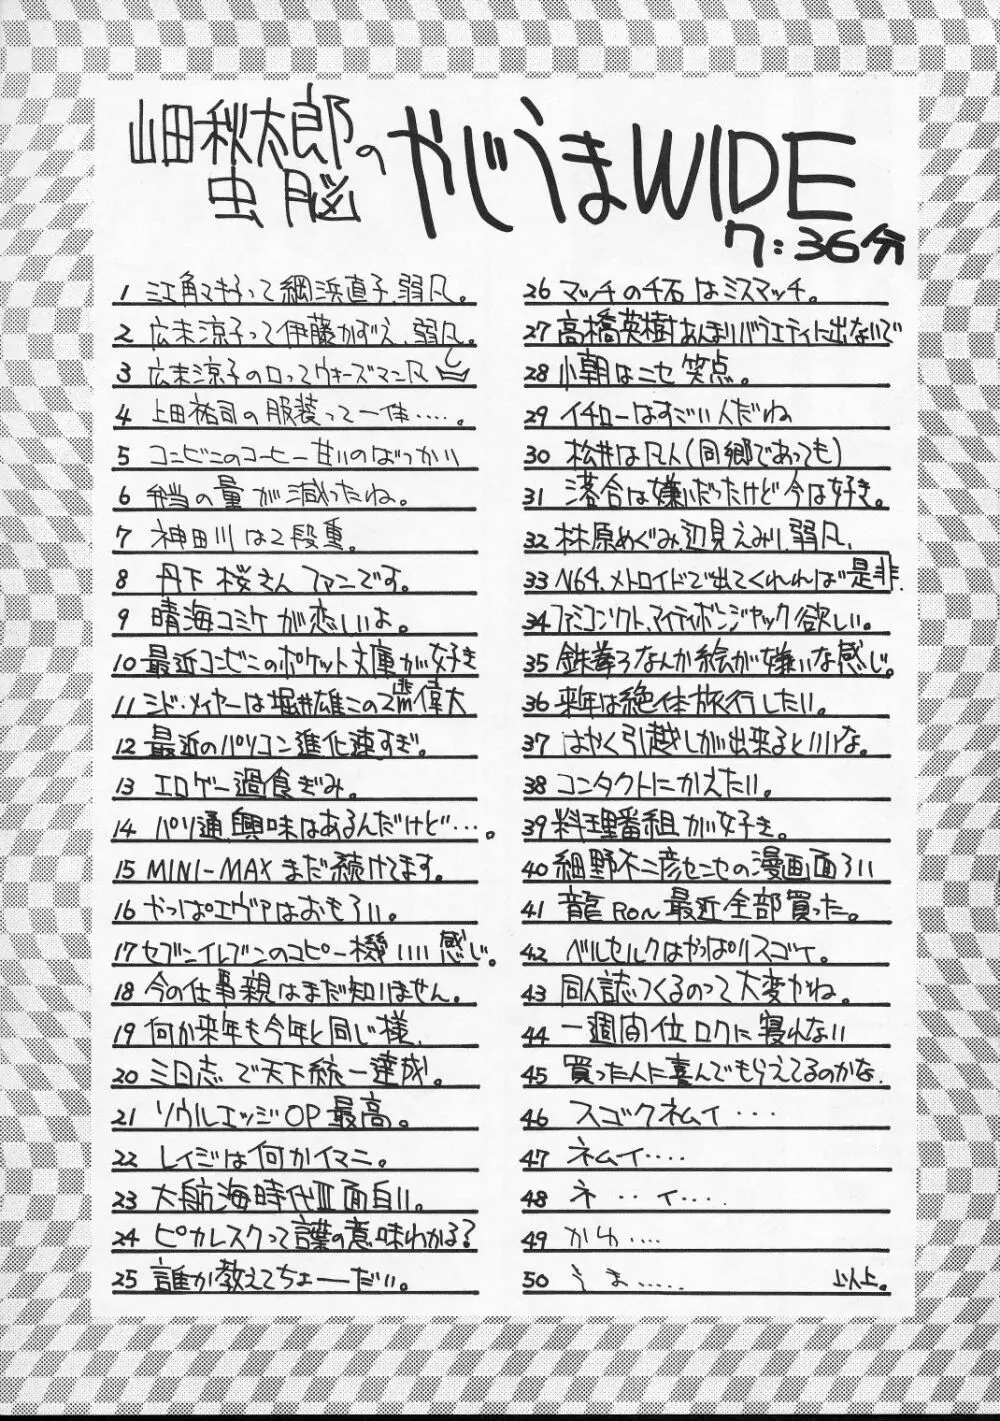 山田秋太郎の
虫脳
やじうまWIDE
7:36分
1 江角マキ子って網浜直子、弱凡。
2 広末涼子って伊藤かずえ、弱凡。
3 広末涼子の口ってウォーズマン凡
4 上田祐司の服装って一体……。
5 コンビニのコーヒー甘いのばっかい
6 弁当の量が減ったね。
7 神田川は2段重。
8 丹下桜さん ファンです。
9 晴海コミケが恋しいよ。
10 最近コンビニのポケット文庫が好き
11 シド・メイヤーは堀井雄二の2乗偉大
12 最近のパソコン進化速すぎ。
13 エロゲー過食ぎみ。
14 パソ通興味はあるんだけど…。
15 MINI-MAXまだ続けてます。
16 やっぱエヴァはおもろい。
17 セブンイレブンのコピー機いい感じ。
18 今の仕事親はまだ知りません。
19 何か来年も今年と同じ様、
20 三国志で天下統一達成。
21 ソウルエッジOP最高。
22 レイジは何かイマニ。
23 大航海時代III面白い。
24 ピカレスクって言葉の意味わかる?
25 誰か教えてちょーだい。
26 マッチの千石はミスマッチ。
27 高橋英樹あんまりバラエティに出ないで
28 小朝はニセ笑点。
29 イチローはすごい人だね
30 松井は凡人(同郷であっても)
31 落合は嫌いだったけど今は好き。
32 林原めぐみ、辺見えみり、弱凡、
33 N64、メトロイドで出てくれれば是非.
34 ファミコンソフト、マイティボンジャック欲しい。
35 鉄拳3なんか絵が嫌いな感じ。
36 来年は絶体旅行したい。
37 はやく引越しが出来るといいな。
38 コンタクトにかえたい。
39 料理番組が好き。
40 細野不二彦センセの漫画面ろい
41 龍RON最近全部買った。
42 ベルセルクはやっぱりスゴイ。
43 同人誌つくるのって大変かね。
44 一週間位ロクに寝れない
45 買った人に喜んでもらえてるのかな.
46 スゴクネムイ・・・
47 ネムイ・・・・
48 ネ・・イ・・・・
49 かゆ・・・・
50 うま・・・・・ 以上。